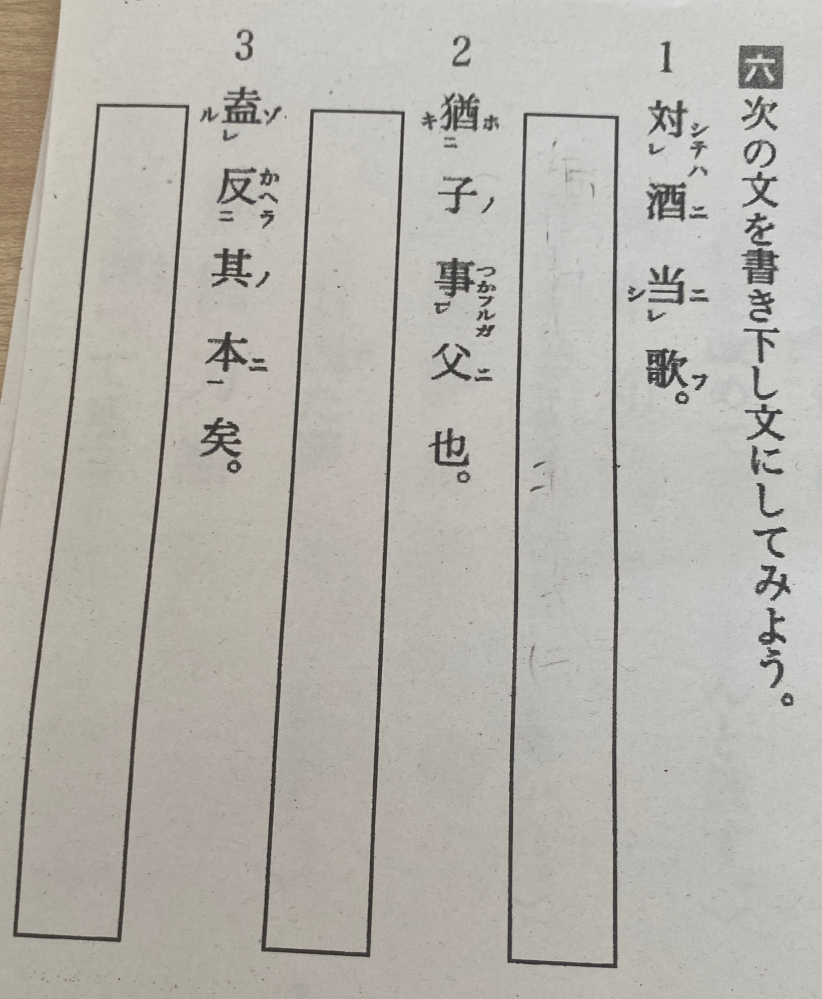 六 次の文を書き下し文にしてみよう。
1 対シテハレ酒ニ当ニシレ歌フ。
2 猶ホキ二子ノ事つかフルガ一レ父ニ也。
3 盍ゾルレ反かヘラ二其ノ本ニ一矣。